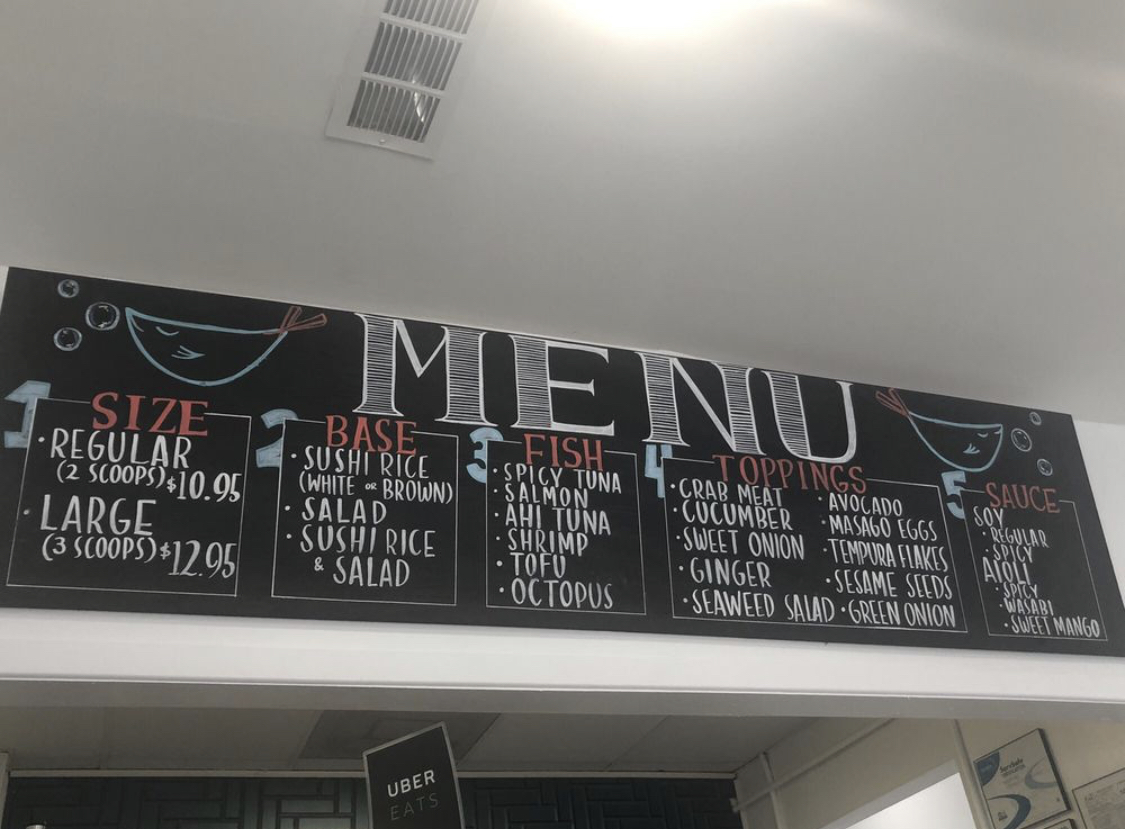 MENU
1 SIZE
· REGULAR
(2 SCOOPS) $10.95
· LARGE
(3 SCOOPS) $12.95
2 BASE
· SUSHI RICE
(WHITE OR BROWN)
· SALAD
· SUSHI RICE
& SALAD
3 FISH
· SPICY TUNA
· SALMON
· AHI TUNA
· SHRIMP
· TOFU
· OCTOPUS
4 TOPPINGS
· CRAB MEAT
· CUCUMBER
· SWEET ONION
· GINGER
· SEAWEED SALAD
· AVOCADO
· MASAGO EGGS
· TEMPURA FLAKES
· SESAME SEEDS
· GREEN ONION
5 SAUCE
SOY
· REGULAR
· SPICY
AIOLI
· SPICY
· WASABI
· SWEET MANGO
UBER
EATS